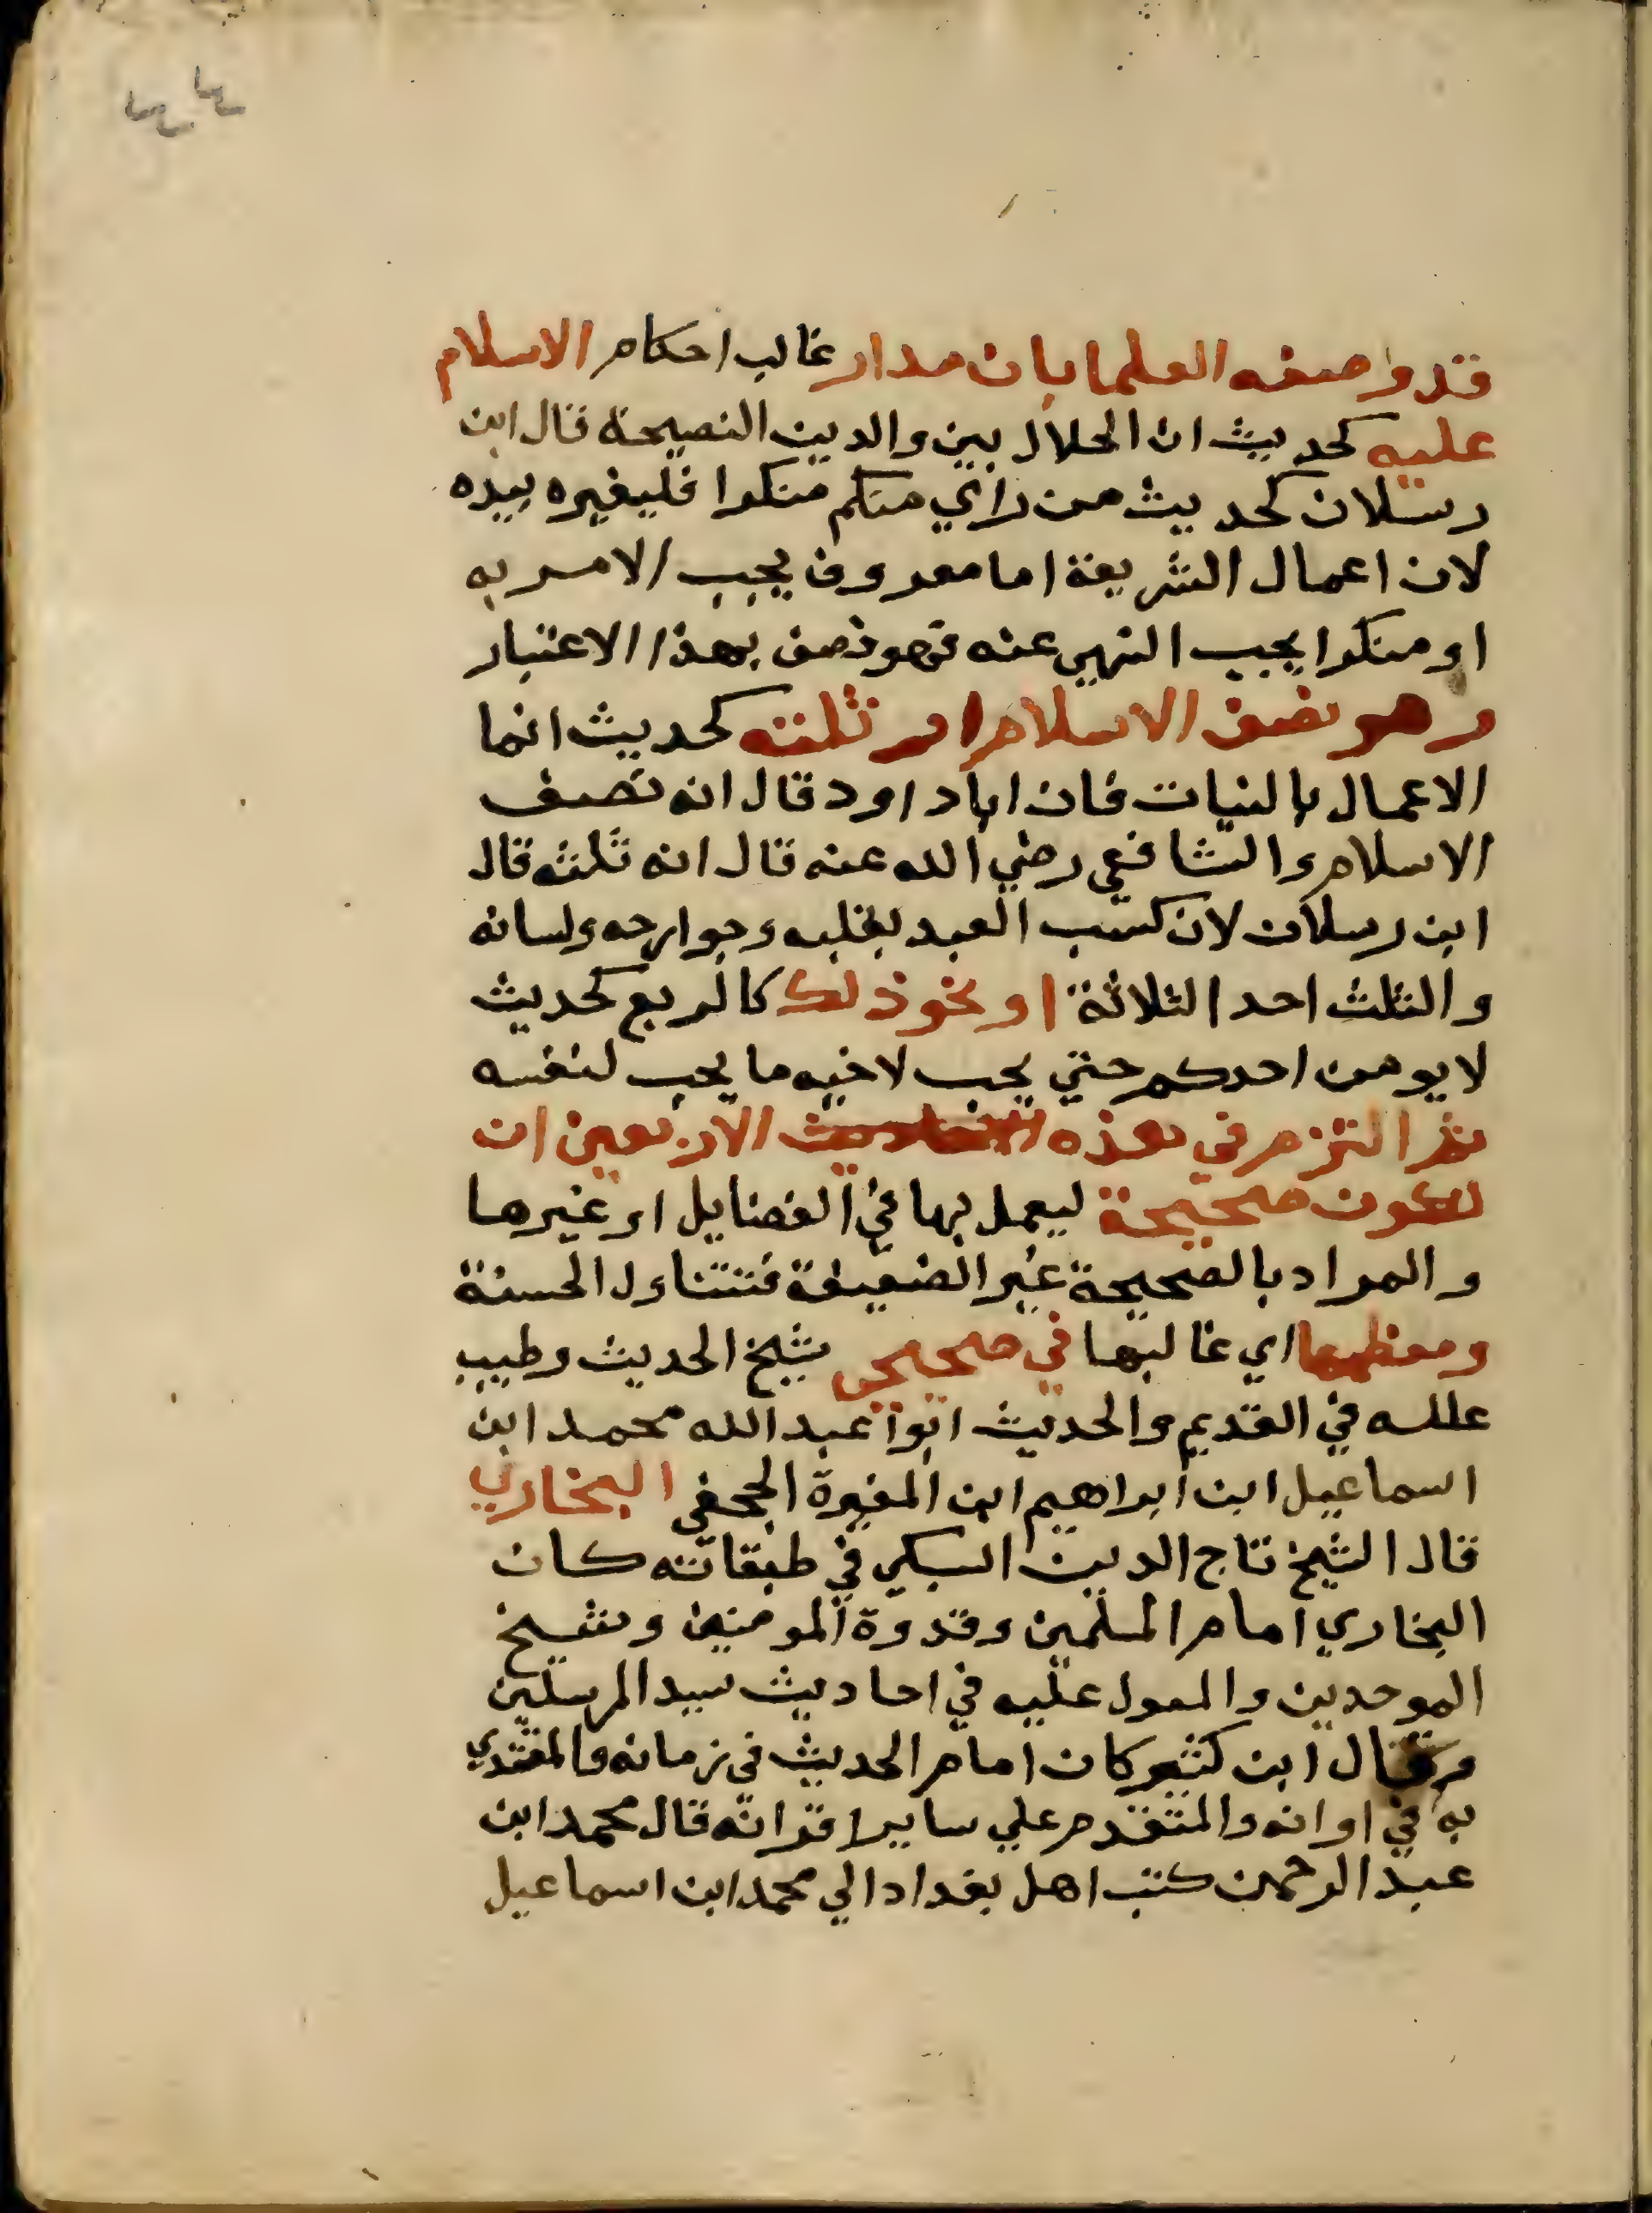 قد واصفه العلما بان مدار غالب احكام الاسلام
عليه كحديث ان الحلال بين والدين النصيحة قال ابن
رسلان كحديث من راي منكم منكرا فليغيره بيده
لان اعمال الشريعة اما معروف يجب الامر به
او منكرا يجب النهي عنه فهو نصف بهذا الاعتبار
وهو نصف الاسلام او ثلثه كحديث انما
الاعمال بالنيات فان اباداود قال انه نصف
الاسلام والشافعي رضي الله عنه قال انه ثلثه قال
ابن رسلان لان كسب العبد بقلبه وجوارحه ولسانه
والثلث احد الثلاثة او نحو ذلك كالربع كحديث
لا يومن احدكم حتي يحب لاخيه ما يحب لنفسه
ثم التزم في هذه الاربعين ان
تكون صحيحة ليعمل بها في الفضايل او غيرها
والمراد بالصحيحة غير الضعيفة فتتناول الحسنة
ومعظمها اي غالبها في صحيحي شيخ الحديث وطبيب
علله في القديم والحديث ابوا عبد الله محمد ابن
اسماعيل ابن ابراهيم ابن المغيرة الجحفي البخاري
قال الشيخ تاج الدين السبكي في طبقاته كان
البخاري امام المسلمين وقدوة المومنين وشيخ
الموحدين والمعول عليه في احاديث سيد المرسلين
وقال ابن كثير كان امام الحديث في زمانه والمقتدي
به في اوانه والمتقدم علي ساير اقرانه قال محمد ابن
عبد الرحمن كتب اهل بغداد الي محمد ابن اسماعيل